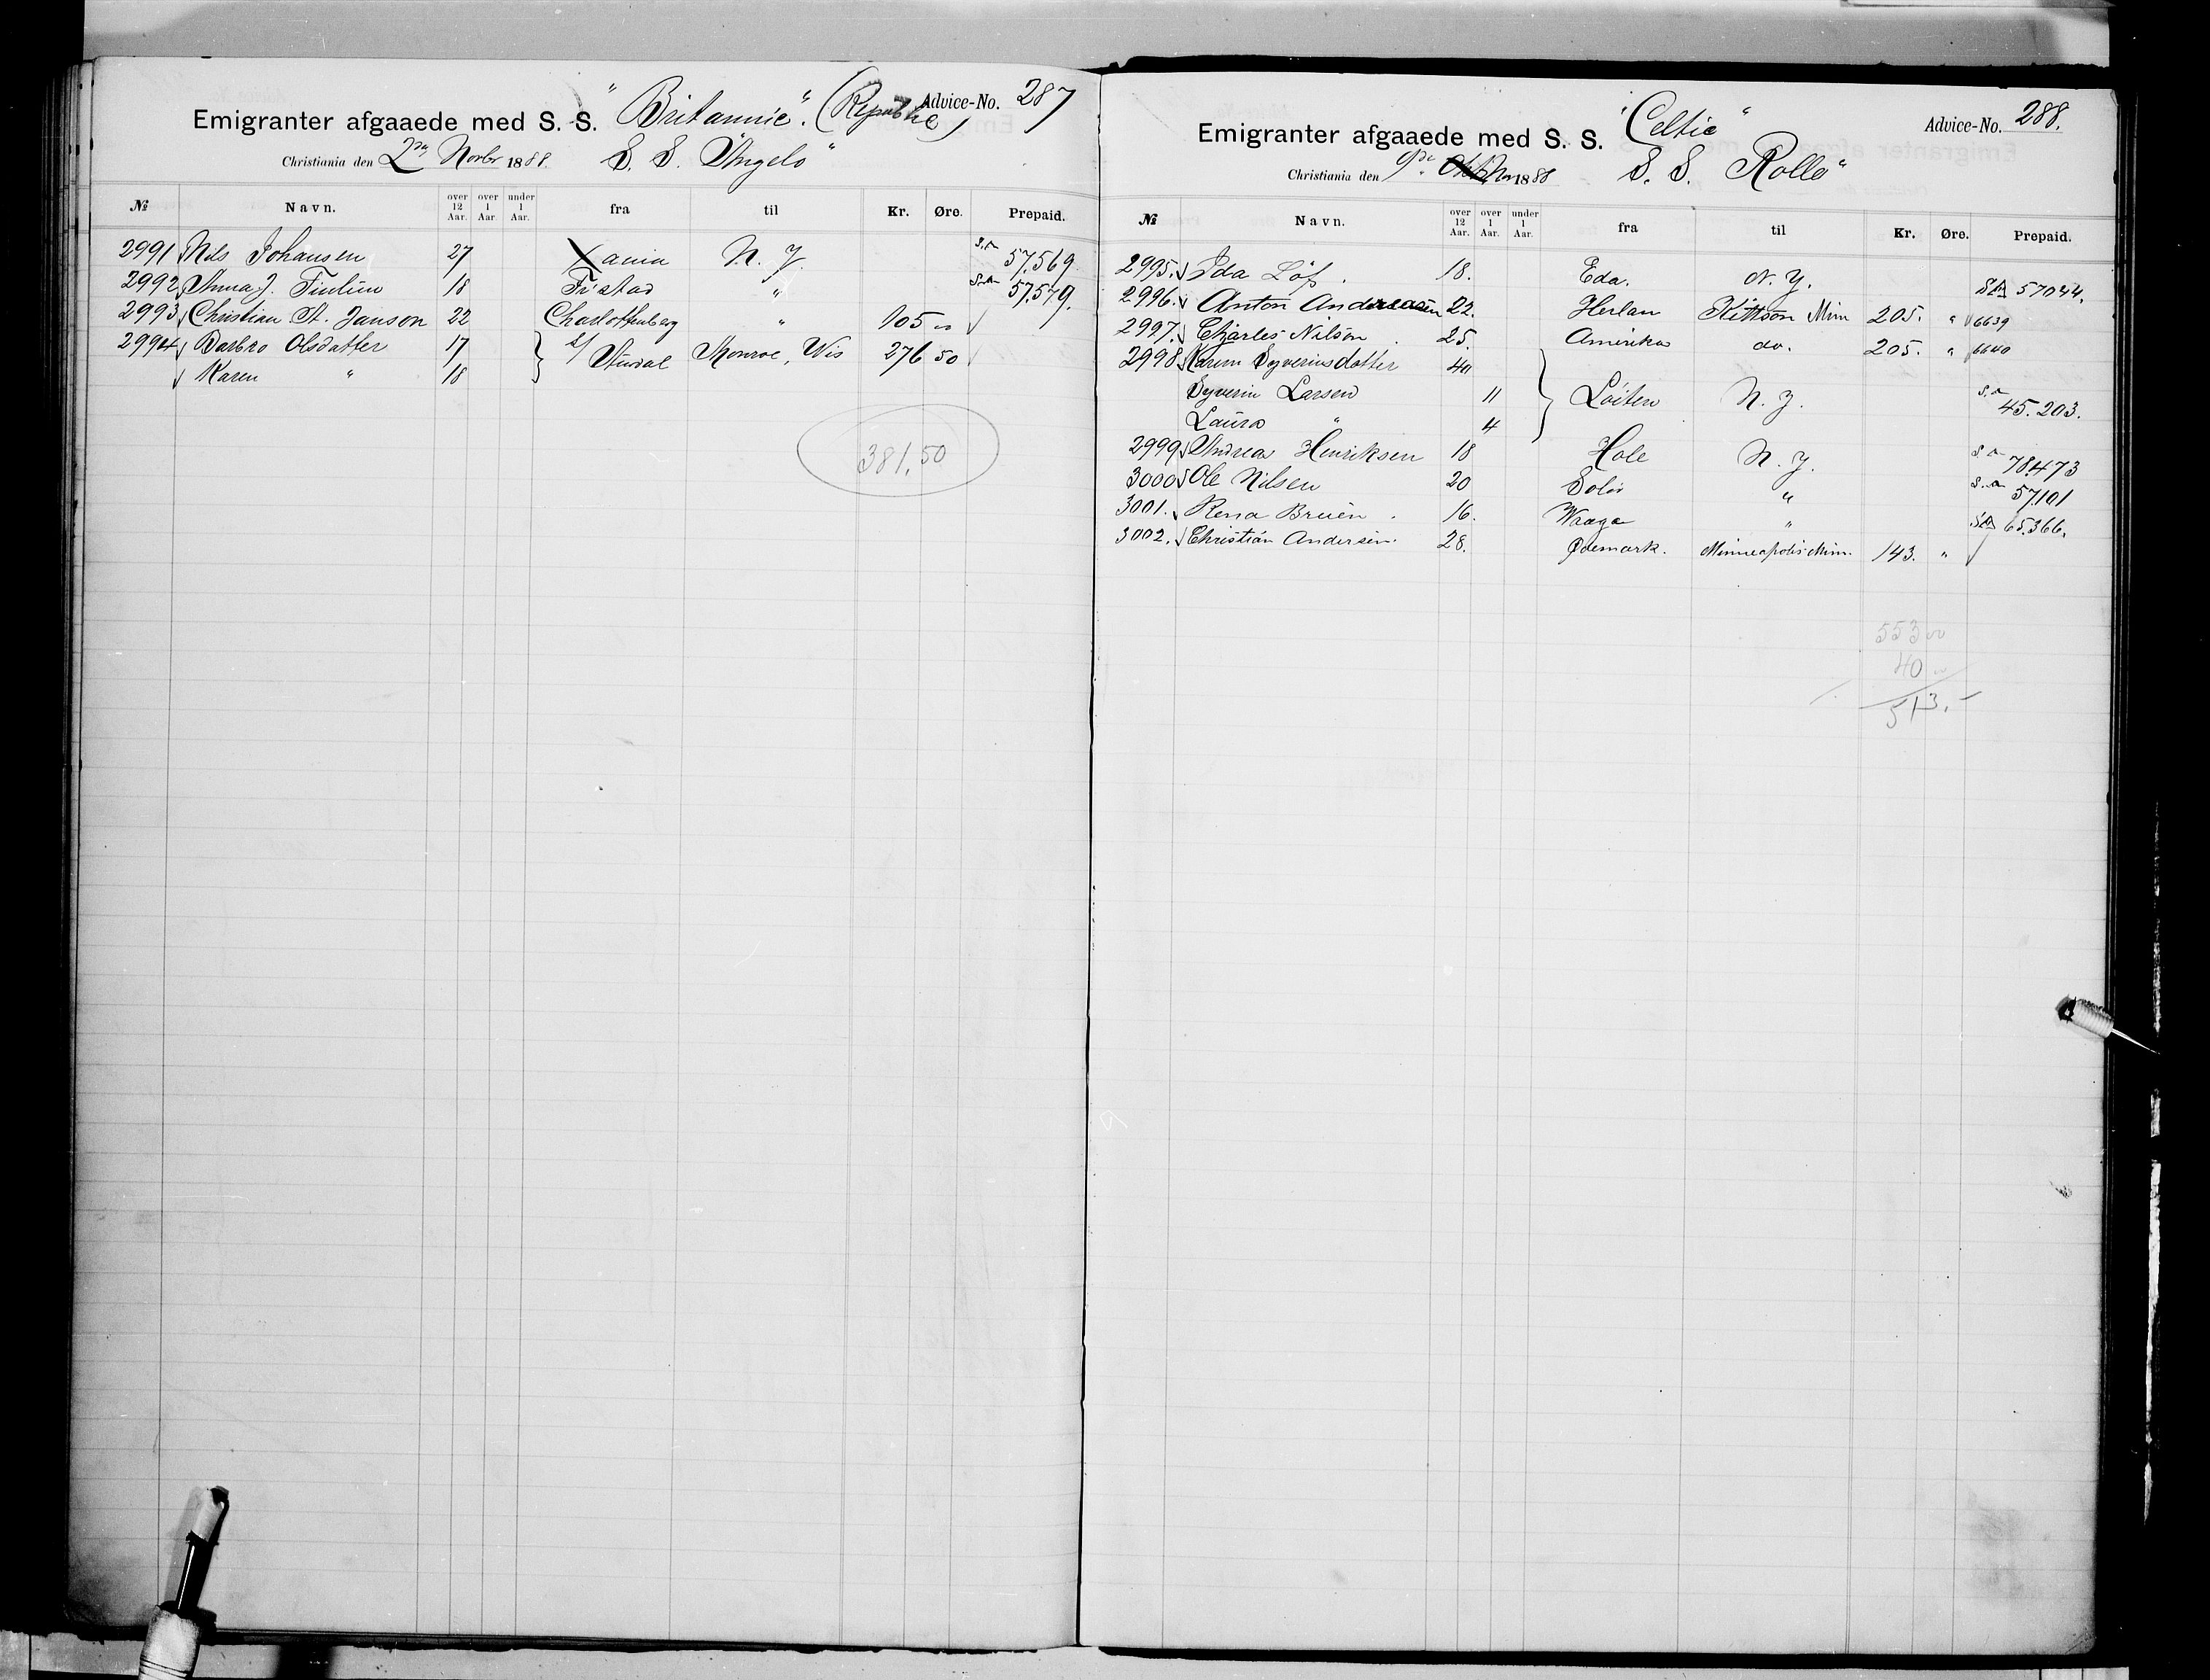 Emigranter afgaaede med S. S. "Britannic". (Republic) Advice-No. 287
Christiania den 2den Novbr 1888. S. S. "Angelo"
№ Navn. over 12 Aar. over 1 Aar. under 1 Aar. fra til Kr. Øre. Prepaid.
2991 Nils Johansen 27 Xania N. Y. 57.569
2992 Anna J. 18 " 57.579.
2993 Christian St. Janson 22 Charlottenberg " 105 00
2994 Barbro Olsdatter 17 } Monroe, Wis 276 50
Karen " 18
381,50
Emigranter afgaaede med S. S. "Celtic" Advice-No. 288.
Christiania den 9de Nov 1888 S. S. Rollo"
№ Navn. over 12 Aar. over 1 Aar. under 1 Aar. fra til Kr. Øre. Prepaid.
2995. Ida Löf. 18. Eda. N. Y. 57044.
2996. Anton Andreasen 22. Herlan Kittson Min 205. " 6639
2997. Charles Nilson 25. Amerika do. 205. " 6640
2998 Karen Syveriusdatter 40 } Löiten N. Y. 45.203.
Syverin Larsen 11
Laura " 4
2999 Andrea Henriksen 18 Hole N. Y. 78.473
3000 Ole Nilsen 20 Solör " 57.101
3001. Rena Breien. 16. Waage " 65.366.
3002. Christian Andersen. 28. Ødemark. Minneapolis Min. 143. "
553 00
40 00
513.-